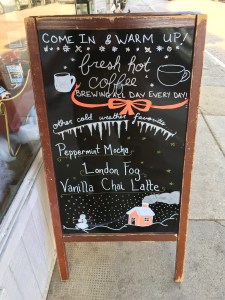 COME IN & WARM UP!
fresh hot
coffee
BREWING ALL DAY EVERY DAY!
other cold weather favorites
Peppermint Mocha
London Fog
Vanilla Chai Latte